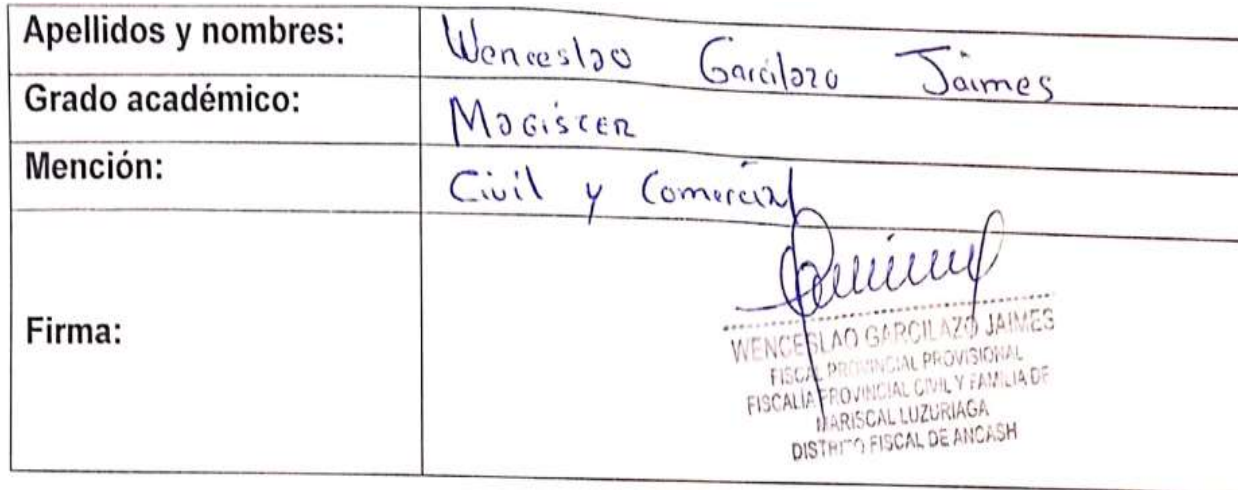 Apellidos y nombres: Wenceslao Garcilazo Jaimes
Grado académico: Magister
Mención: Civil y Comercial
Firma:
WENCESLAO GARCILAZO JAIMES
FISCAL PROVINCIAL PROVISIONAL
FISCALÍA PROVINCIAL CIVIL Y FAMILIA DE
MARISCAL LUZURIAGA
DISTRITO FISCAL DE ANCASH